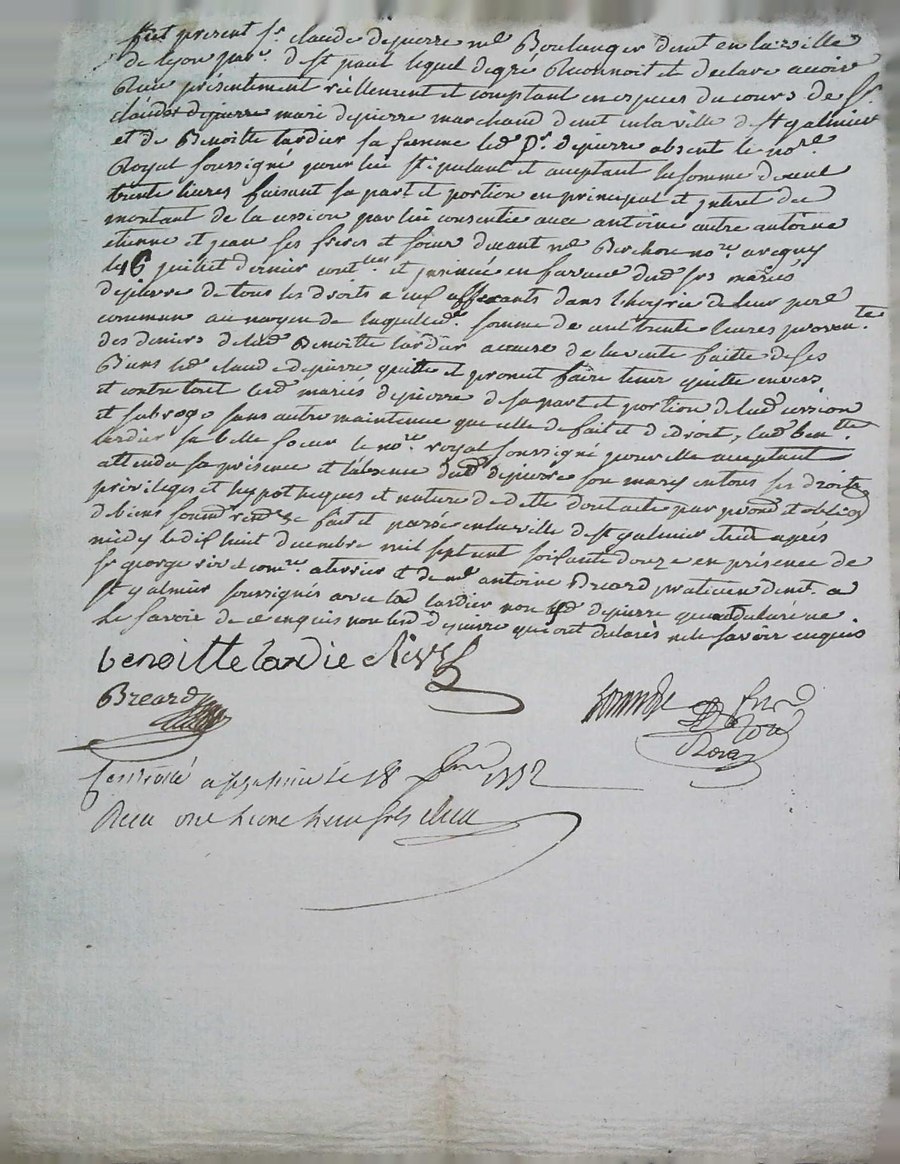 fut present sr. claude depierre md Boulanger demt en la ville
de lyon parse. de st paul lequel de gré Reconnoit et declare avoir
Reçu présentement réellement et comptant en especes du cours de sr.
claude depierre marie depierre marchand demt en la ville de st galmier
et de Benoitte tardier sa femme led. Sr. depierre absent le nore.
Royal soussigné pour lui stipulant et aceptant la somme de cent
trente livres faisant sa part et portion en principal et interet du
montant de la cession par lui consentie aux antoine autre antoine
etienne et jean ses freres et soeur devant me nore.
le 16 juillet dernier contlée et en faveur desd. srs mariés
depierre de tous les droits a eux afferants dans l'hoyrie de leur pere
commun au moyen de laquelle de. somme de cent trente livres provente.
des deniers de lad. Benoitte tardier a cause de la vente faitte de ses
Biens led. claude depierre quitte et promet faire tenir quitte envers
et contre tout lesd. mariés depierre de sa part et portion de lad. cession
et subrogé sans autre maintenue que celle de fait et de droit, lad. bentte.
tardier sa belle soeur le nore. royal soussigné pour elle aceptant
attendu sa présence et l'absence dud. depierre son mary en tous ses droits
privileges et hypotheques et nature de dette dont acte par promd. et oblion
de biens soumd. rend. &c fait et passé en la ville de st galmier étude après
midy le dix huit decembre mil sept cent soixante douze en présence de
sr george comre. a terrier et de me antoine Breard praticien demt. a
st galmier soussignés avec lad. tardier non led. depierre
le savoir de ce enquis non led. depierre qui ont déclarés ne le savoir enquis
benoitte tardie
Breard
Controllé a st galmier le 18 1772
Reçu une livre